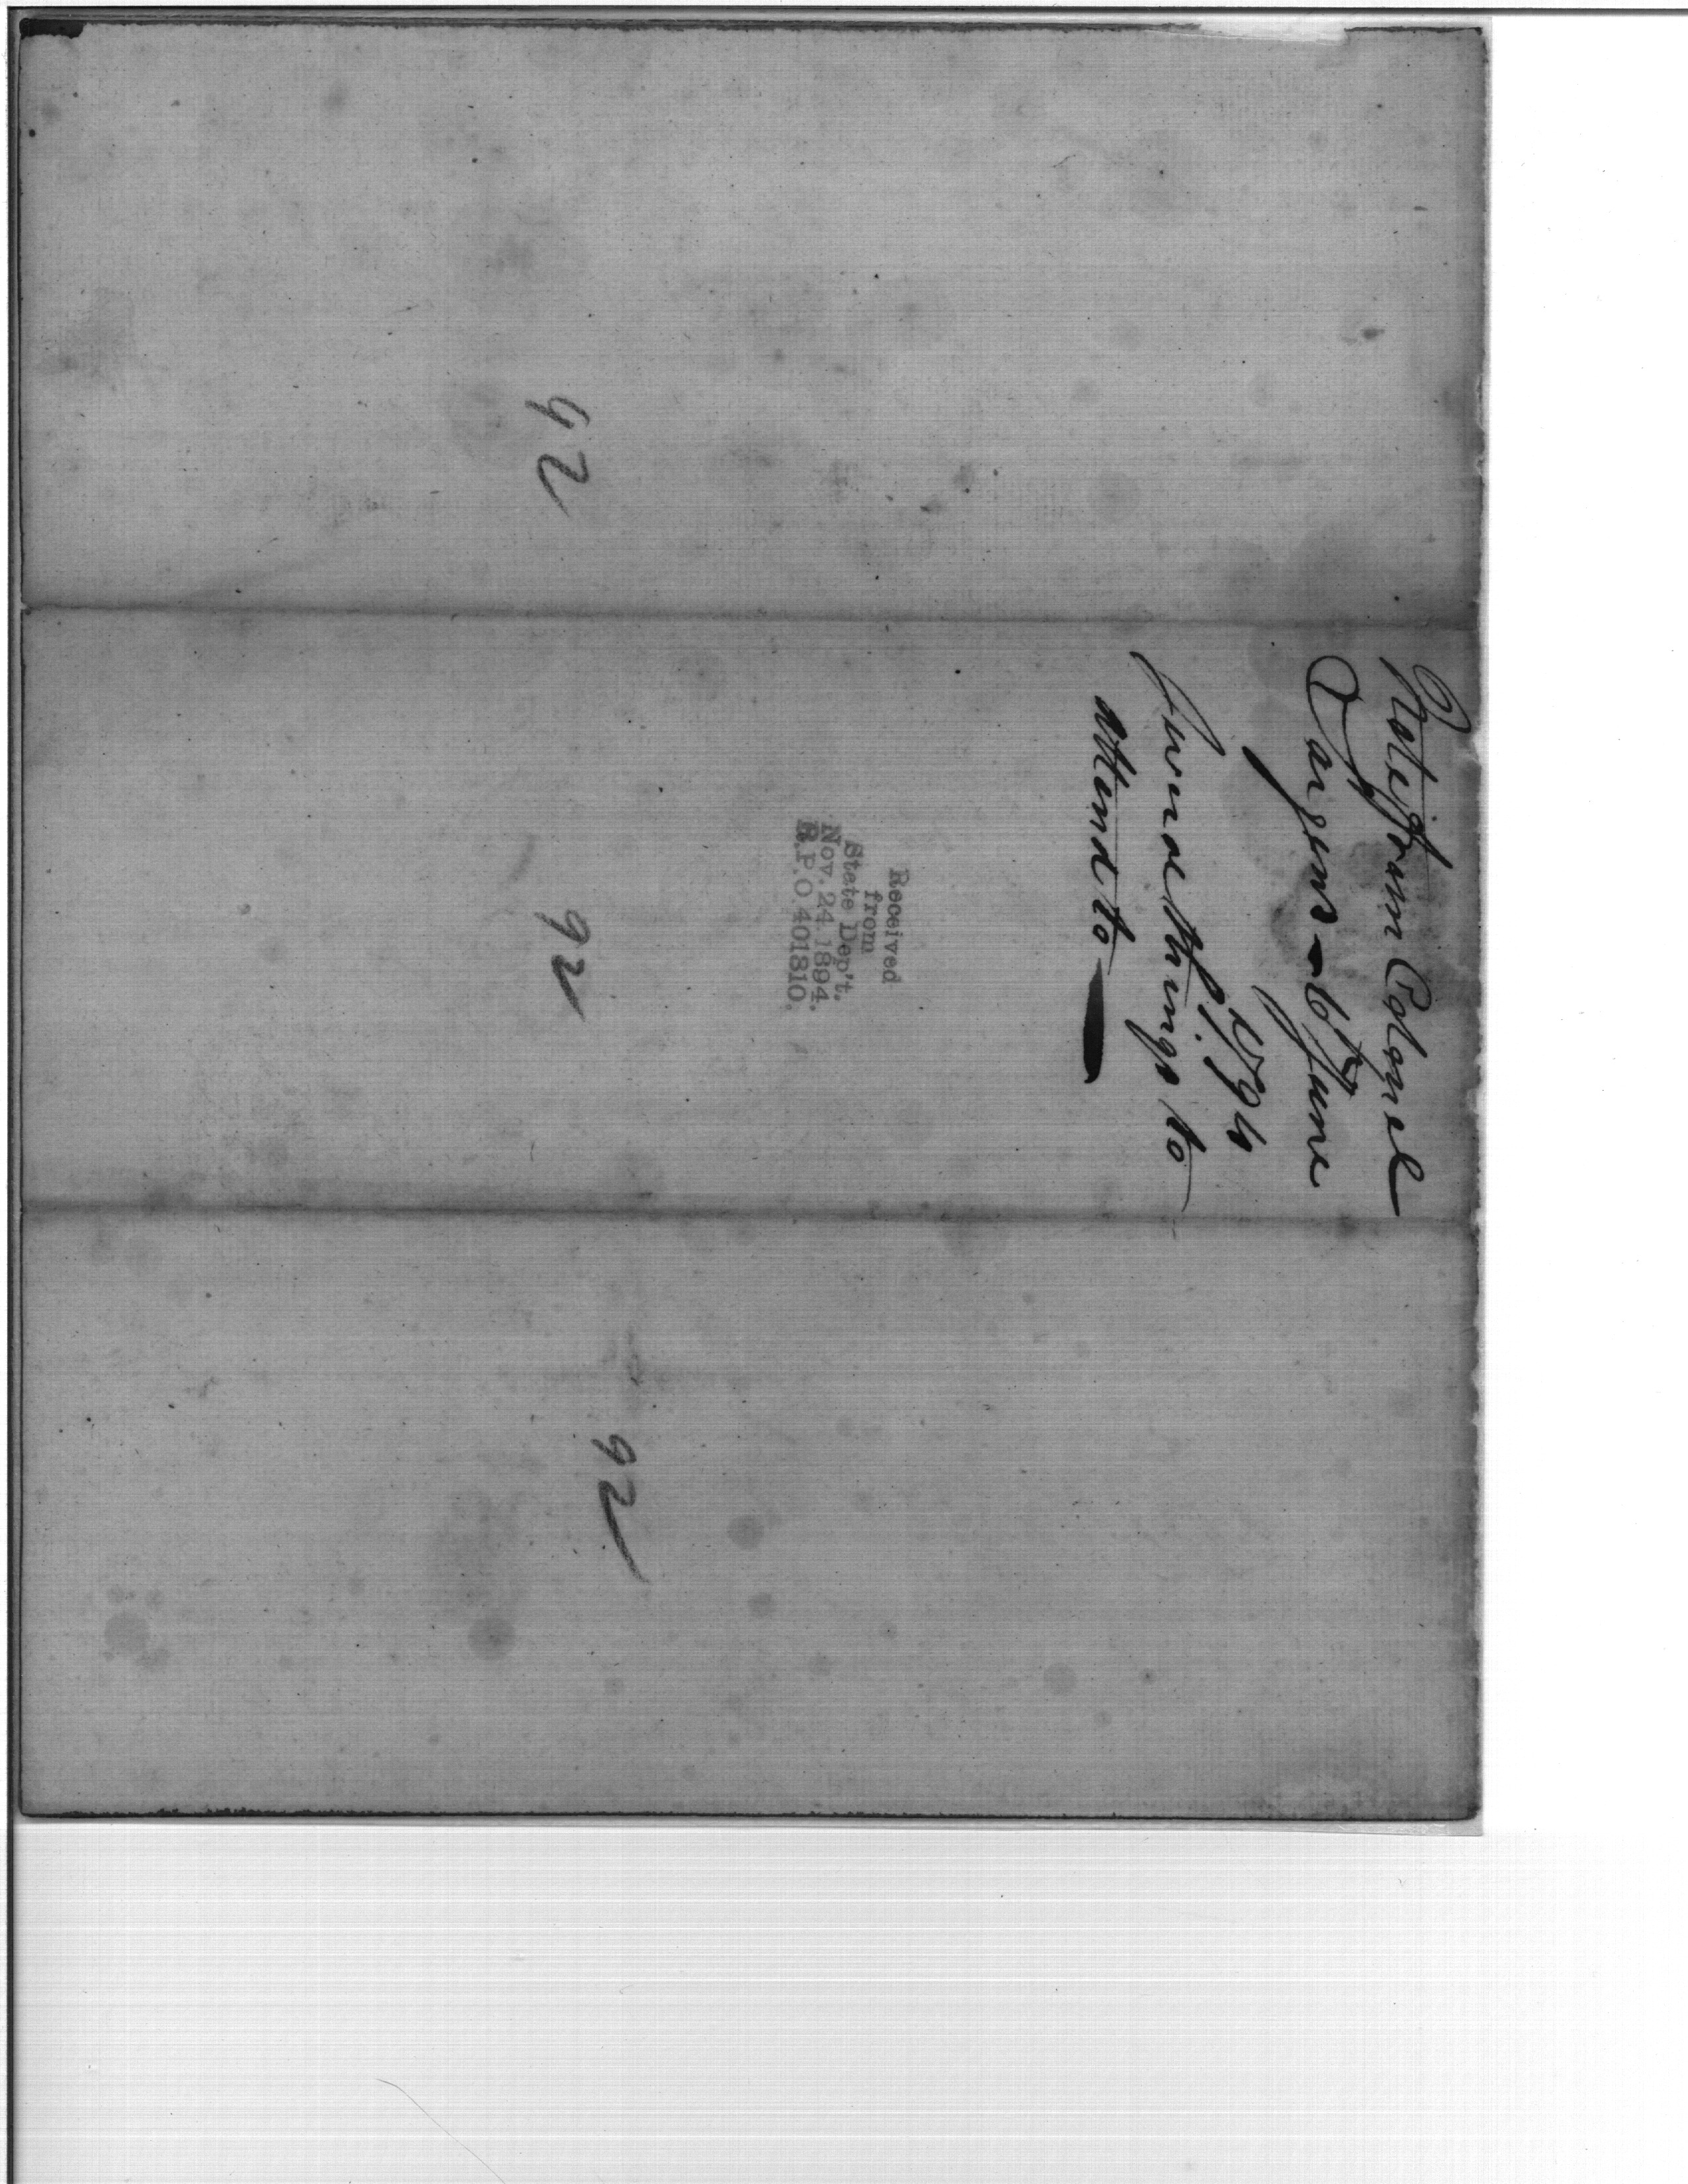 Note from Colonel
Sargent - 6th June
1794
Sundry things to
attend to
Received
from
State Dep't.
Nov. 24 1894.
R.P.O. 401810.
92
92
92